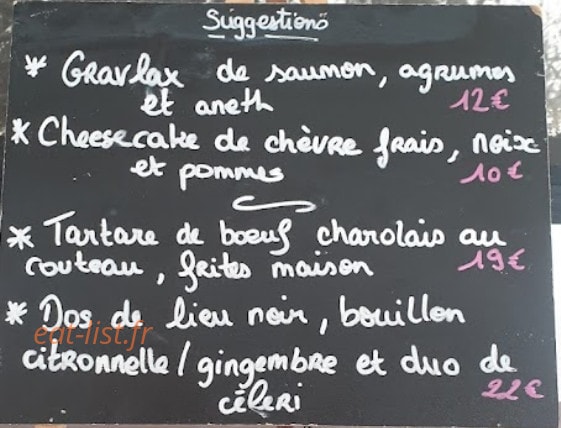 Suggestions
* Gravlax de saumon, agrumes
et aneth 12€
* Cheesecake de chèvre frais, noix
et pommes 10€
* Tartare de boeuf charolais au
couteau, frites maison 19€
* Dos de lieu noir, bouillon
eat-list.fr
citronnelle/gingembre et duo de
céleri 22€